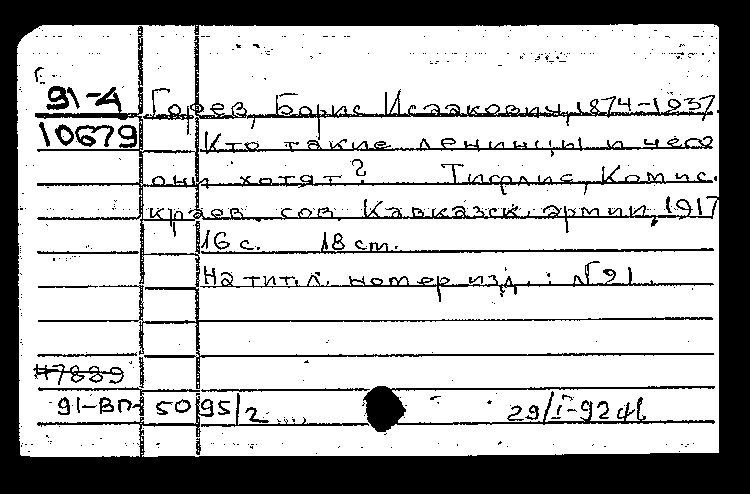 91-А Горев, Борис Исаакович, 1874-1937.
10679 Кто такие ленинцы и чего
они хотят? Тифлис, Комис.
краев. сов. Кавказск. армии, 1917
16 с. 18 cm.
На тит. л. номер изд.: №21.
47889
91-ВП- 5095/2
29/I-92